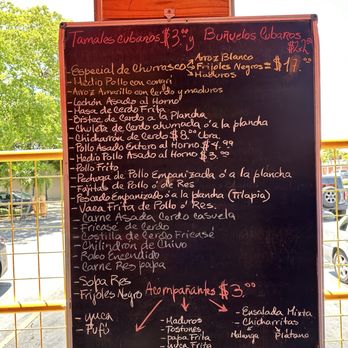 Tamales Cubanos $3.00 y Buñuelos Cubanos
-Especial de Churrasco Arroz Blanco
Frijoles Negros = $17.99
Maduros
-Medio Pollo con congri
-Arroz Amarillo con Cerdo y maduros
-Lechón Asado al Horno
-Masa de Cerdo Frita
-Bistec de Cerdo a la Plancha
-Chuleta de Cerdo ahumada ó a la plancha
-Chicharrón de Cerdo $8.00 Lbra.
-Pollo Asado Entero al Horno $4.99
-Medio Pollo Asado $3.99
-Pollo Frito
-Pechuga de Pollo Empanizada ó a la plancha
-Fajitas de Pollo ó de Res
-Pescado Empanizado ó a la plancha (Tilapia)
-Vaca Frita de Pollo ó Res.
-Carne Asada Cerdo Casuela
-Fricasé de Cerdo
-Costilla de Cerdo Fricasé
-Chilindrón de Chivo
-Rabo Encendido
-Carne Res papa
-Sopa Res
-Frijoles Negro
Acompañantes $3.00
-yuca
-Fufú
-Maduros
-Tostones
-papa Frita
-yuca Frita
-Ensalada Mixta
-Chicharritas
Malanga Plátano